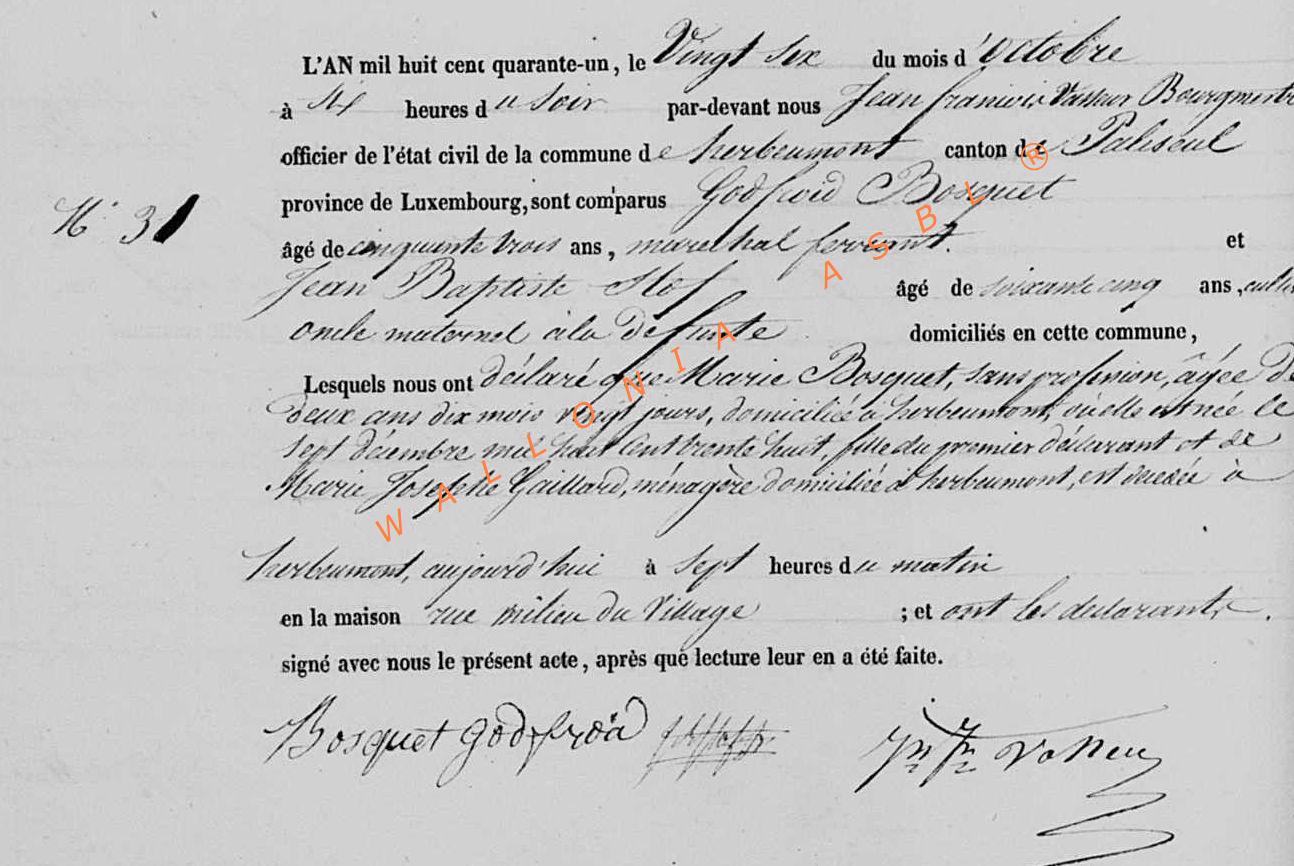 L'AN mil huit cent quarante-un, le Vingt six du mois d'Octobre
à six heures du soir par-devant nous Jean françois Vasseur Bourgmestre
officier de l'état civil de la commune de herbeumont canton de Paliseul
province de Luxembourg, sont comparus Godfroid Bosquet
N° 31
âgé de cinquante trois ans, marechal ferrant. et
Jean Baptiste âgé de soixante cinq ans,
oncle maternel à la defunte domiciliés en cette commune,
Lesquels nous ont déclaré que Marie Bosquet, sans profession, âgée de
deux ans dix mois vingt jours, domiciliée à herbeumont, où elle est née le
sept décembre mil huit cent trente huit, fille du premier déclarant et de
Marie Josephe Gaillard, ménagère domiciliée à herbeumont, est décédée à
herbeumont, aujourd'hui à sept heures du matin
en la maison rue milieu du Village ; et ont les declarants.
signé avec nous le présent acte, après que lecture leur en a été faite.
Bosquet godfroid
WALLONIA ASBL ®